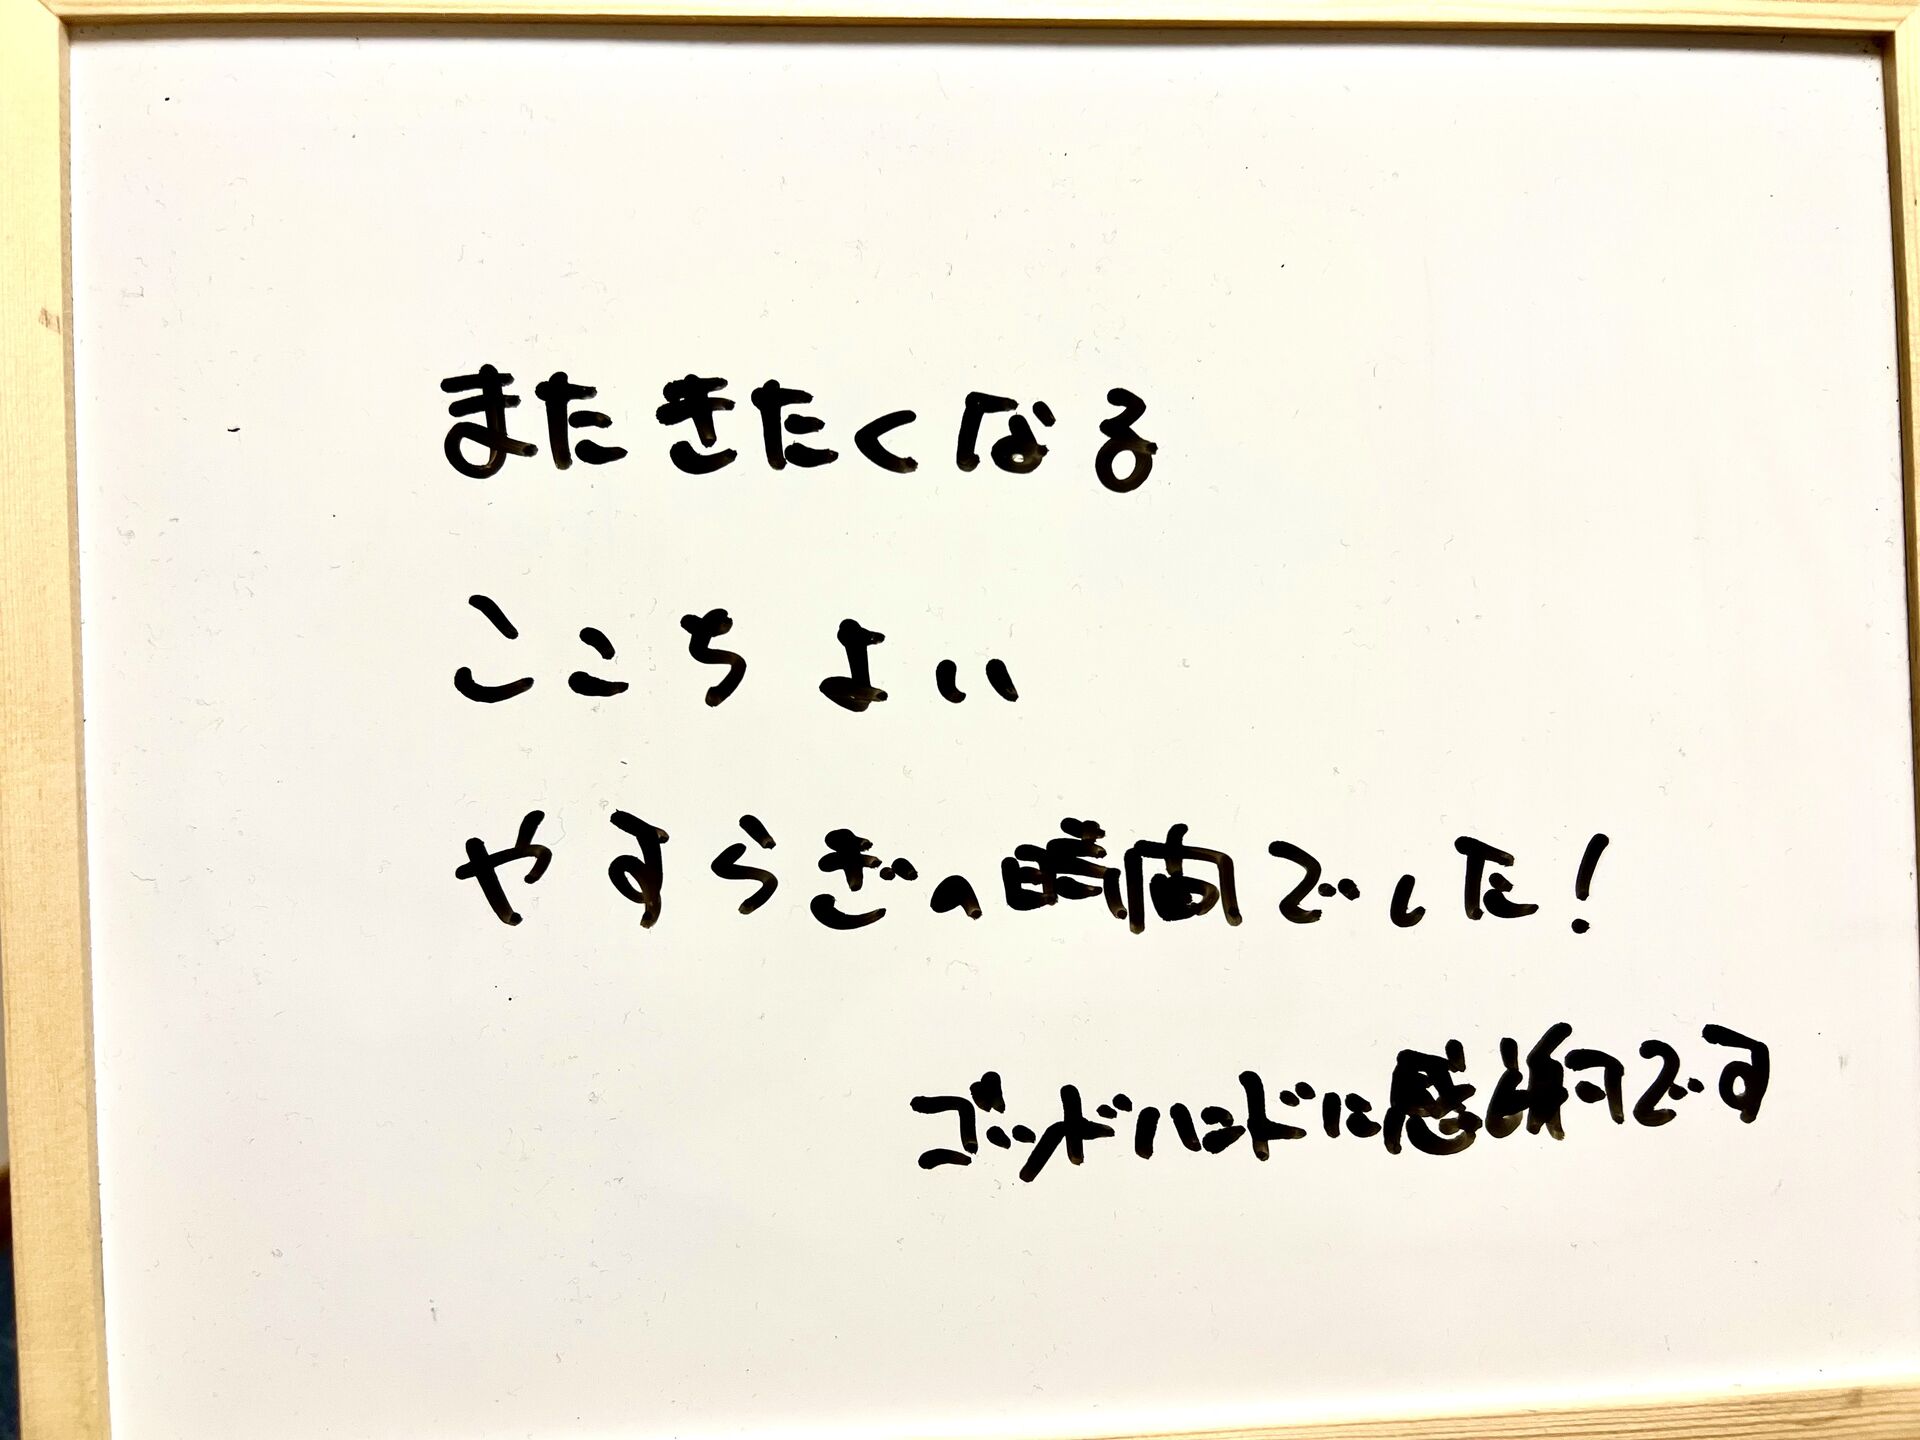 またきたくなる
ここちよい
やすらぎの時間でした!
ゴッドハンドに感謝です